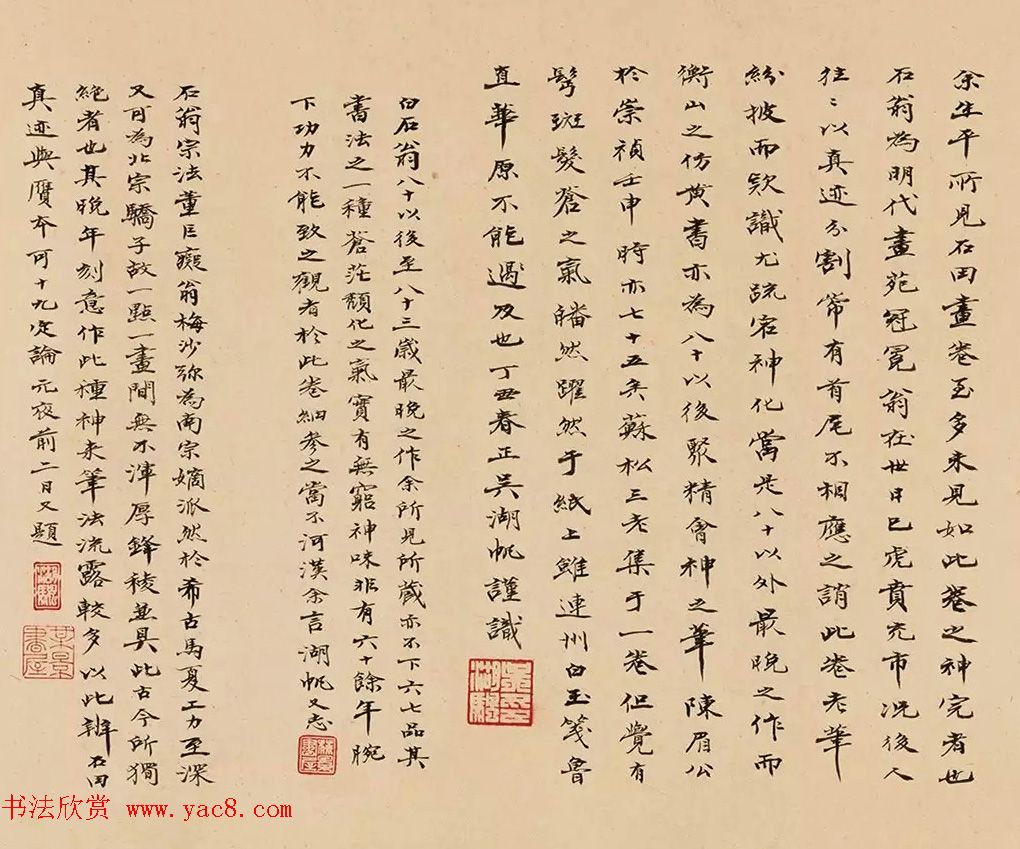 余生平所見石田畫卷至多未見如此卷之神完者也
石翁為明代畫苑冠冕翁在世日已虎賁充市況後人
往〻以真迹分割常有首尾不相應之誚此卷老筆
紛披而款識尤疏宕神化當是八十以外最晚之作而
衡山之仿黄書亦為八十以後聚精會神之筆陳眉公
於崇禎壬申時亦七十五矣蘇松三老集于一卷但覺有
鬢斑髮蒼之氣皤然躍然于紙上雖連州白玉箋魯
直華原不能過及也丁丑春正吳湖帆謹識
白石翁八十以後至八十三歲最晚之作余所見所藏亦不下六七品其
書法之一種蒼莊頹化之氣實有無窮神味非有六十餘年腕
下功力不能致之觀者於此卷細參之當不河漢余言湖帆又志
石翁宗法董巨癡翁梅沙弥為南宗嫡派然於希古馬夏工力至深
又可為北宗驕子故一點一畫間無不渾厚鋒稜並具此古今所獨
絕者也其晚年刻意作此種神来筆法流露較多以此辨石田
真迹與贋本可十九定論元夜前二日又題
书法欣赏 www.yac8.com